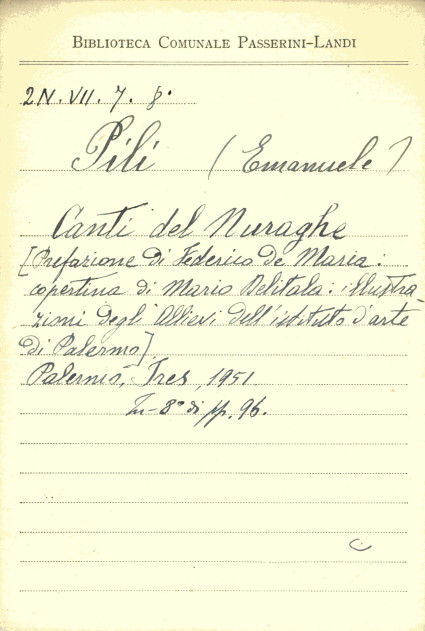 BIBLIOTECA COMUNALE PASSERINI-LANDI
2N. VII. 7. 8.
Pili (Emanuele)
Canti del Nuraghe
[Prefazione di Federico De Maria:
copertina di Mario Delitala: illustra
zioni degli Allievi dell'istituto d'arte
di Palermo].
Palermo, Ires, 1951.
In-8° di pp. 96.
C